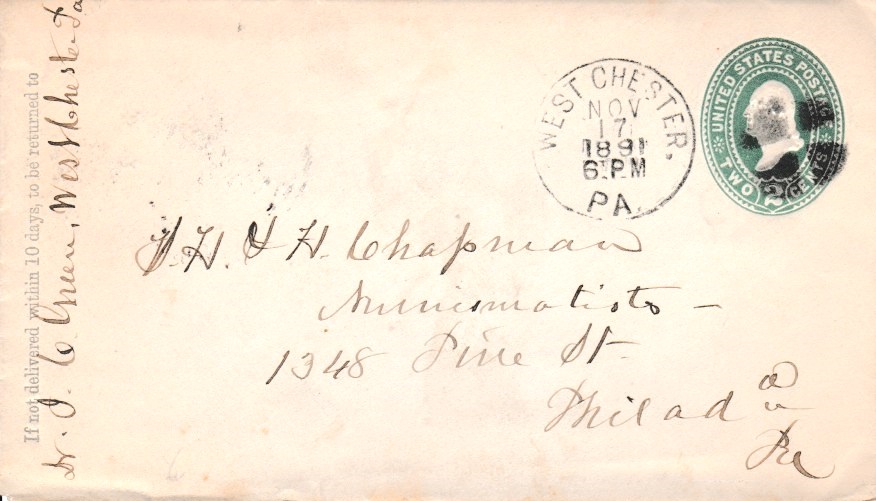 If not delivered within 10 days, to be returned to
Dr. J. C Green, West Chester Pa
WEST CHESTER,
NOV
17
1891
6 PM
PA.
UNITED STATES POSTAGE
TWO 2 CENTS
H. & H. Chapman
Numismatists –
1348 Pine St.
Philada
Pa